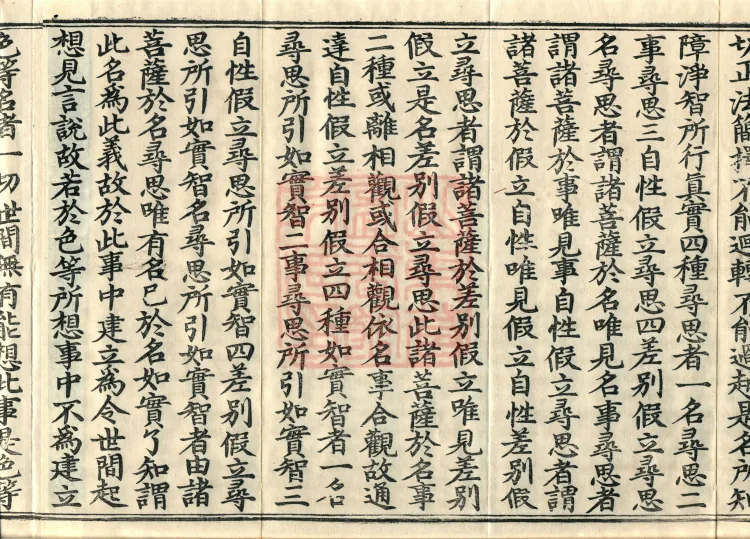 切正法簡擇不能迴轉不能過越是名所知
障淨智所行眞實四種尋思者一名尋思二
事尋思三自性假立尋思四差別假立尋思
名尋思者謂諸菩薩於名唯見名事尋思者
謂諸菩薩於事唯見事自性假立尋思者謂
諸菩薩於假立自性唯見假立自性差別假
立尋思者謂諸菩薩於差別假立唯見差別
假立是名差別假立尋思此諸菩薩於名事
二種或離相觀或合相觀依名事合觀故通
達自性假立差別假立四種如實智者一名
尋思所引如實智二事尋思所引如實智三
自性假立尋思所引如實智四差別假立尋
思所引如實智名尋思所引如實智者由諸
菩薩於名尋思唯有名已於名如實了知謂
此名爲此義故於此事中建立爲令世間起
想見言說故若於色等所想事中不爲建立
色等名者一切世間無有能想此事是色等